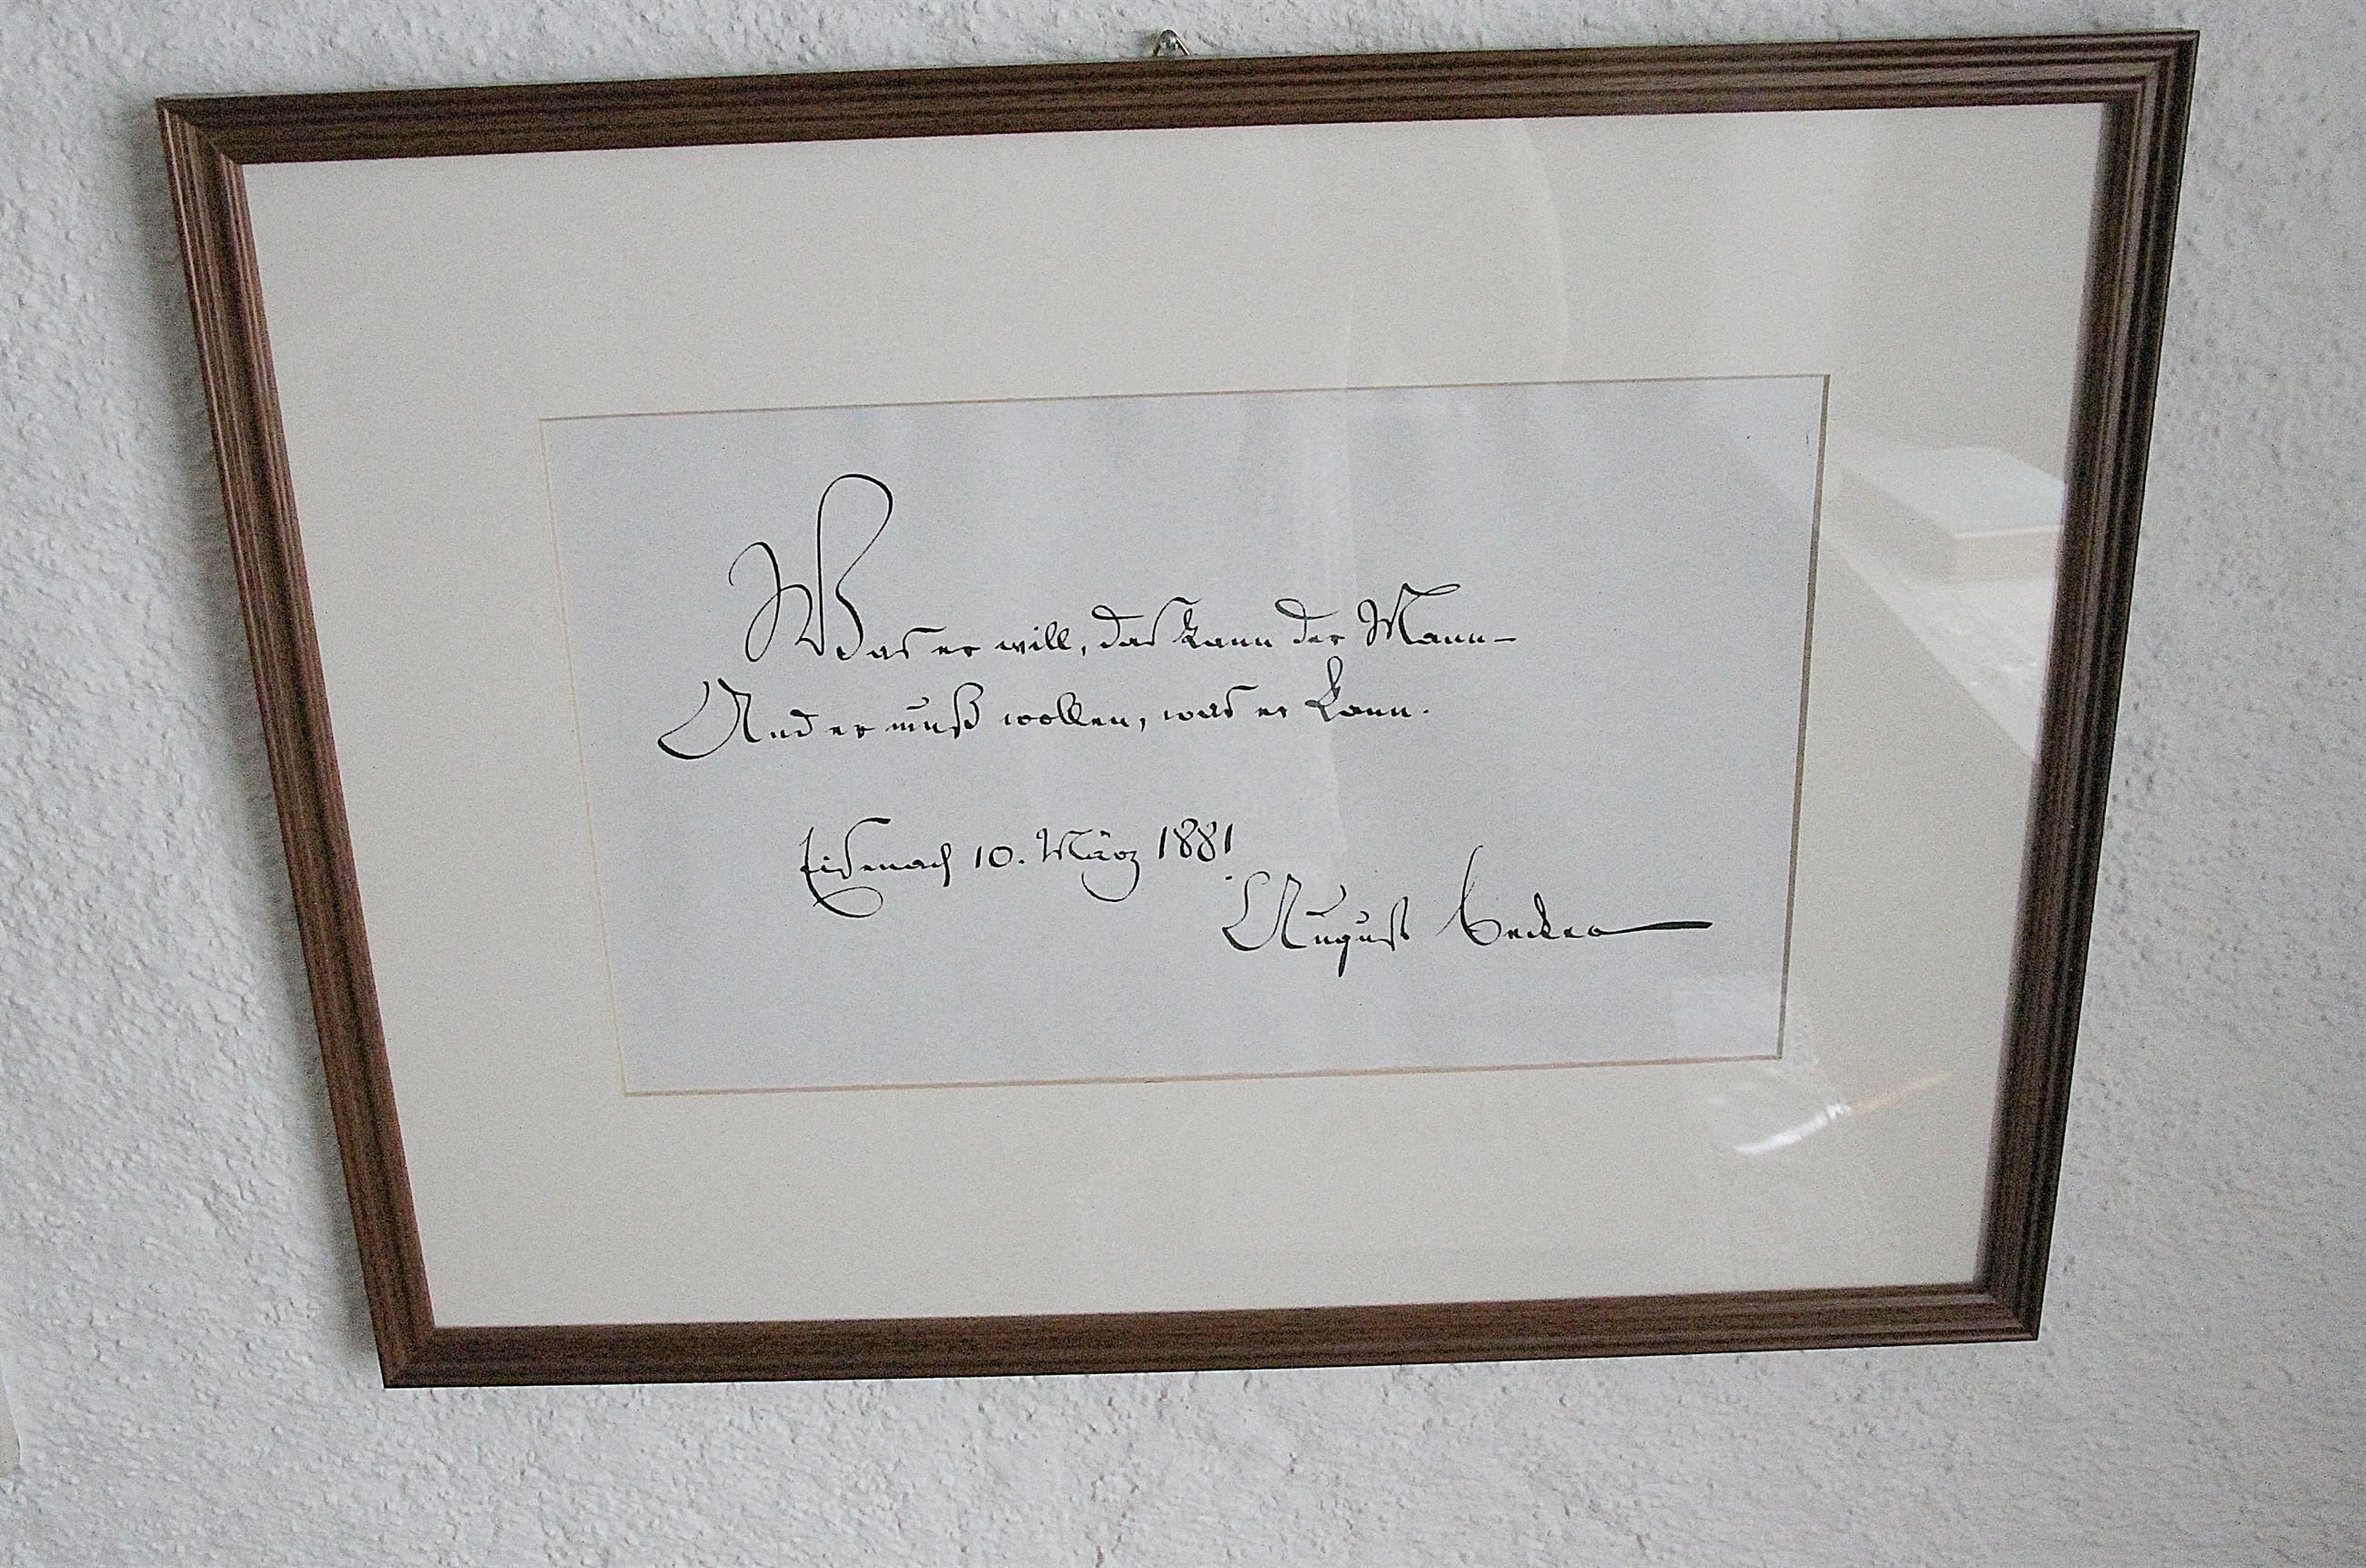 Was er will, das kann der Mann –
Und er muß wollen, was er kann.
Eisenach 10. März 1881.
August Becker